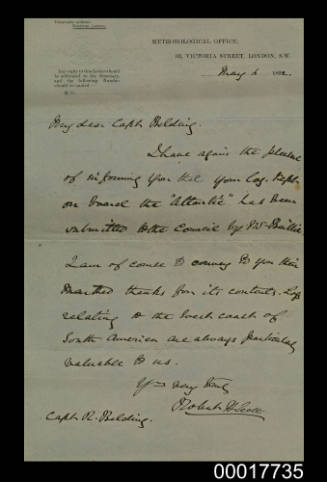 METEOROLOGICAL OFFICE,
63, VICTORIA STREET, LONDON, S.W.
Any reply to this letter should
be addressed to the Secretary,
and the following Number
should be quoted
May 6 1882.
My Dear Capt. Belding.
I have again the pleasure
of informing you that your Log, kept
on board the "Atlantic" has been
submitted to the Council by Mr Baillie
I am of course to convey to you their
thanks for its contents. Logs
relating to the West coast of
South America are always particularly
valuable to us.
Yrs very truly
Robert H Scott
Capt. R. Belding.
00017735